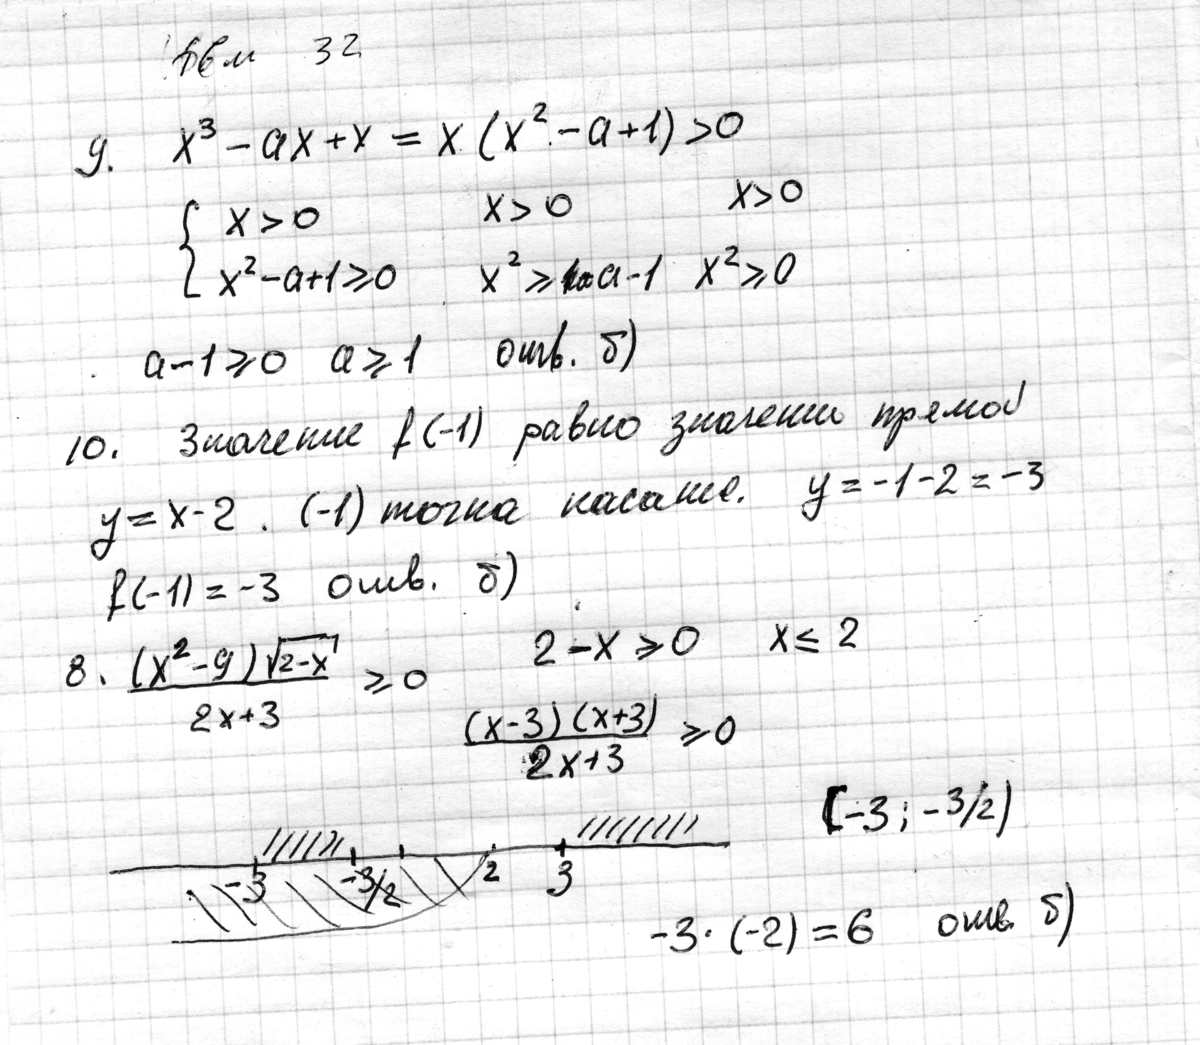 32
9. x³ - ax + x = x (x² - a + 1) > 0
{ x > 0 x > 0 x > 0
x² - a + 1 ≥ 0 x² ≥ a - 1 x² ≥ 0
a - 1 ≥ 0 a ≥ 1 отв. б)
10. Значение f(-1) равно значению прямой
y = x - 2 . (-1) точка касание. y = -1 - 2 = -3
f(-1) = -3 отв. б)
8. (x² - 9) √(2-x) / (2x+3) ≥ 0 2 - x ≥ 0 x ≤ 2
(x-3) (x+3) / (2x+3) ≥ 0
[-3 ; -3/2)
-3 -3/2 2 3
-3 · (-2) = 6 отв. б)